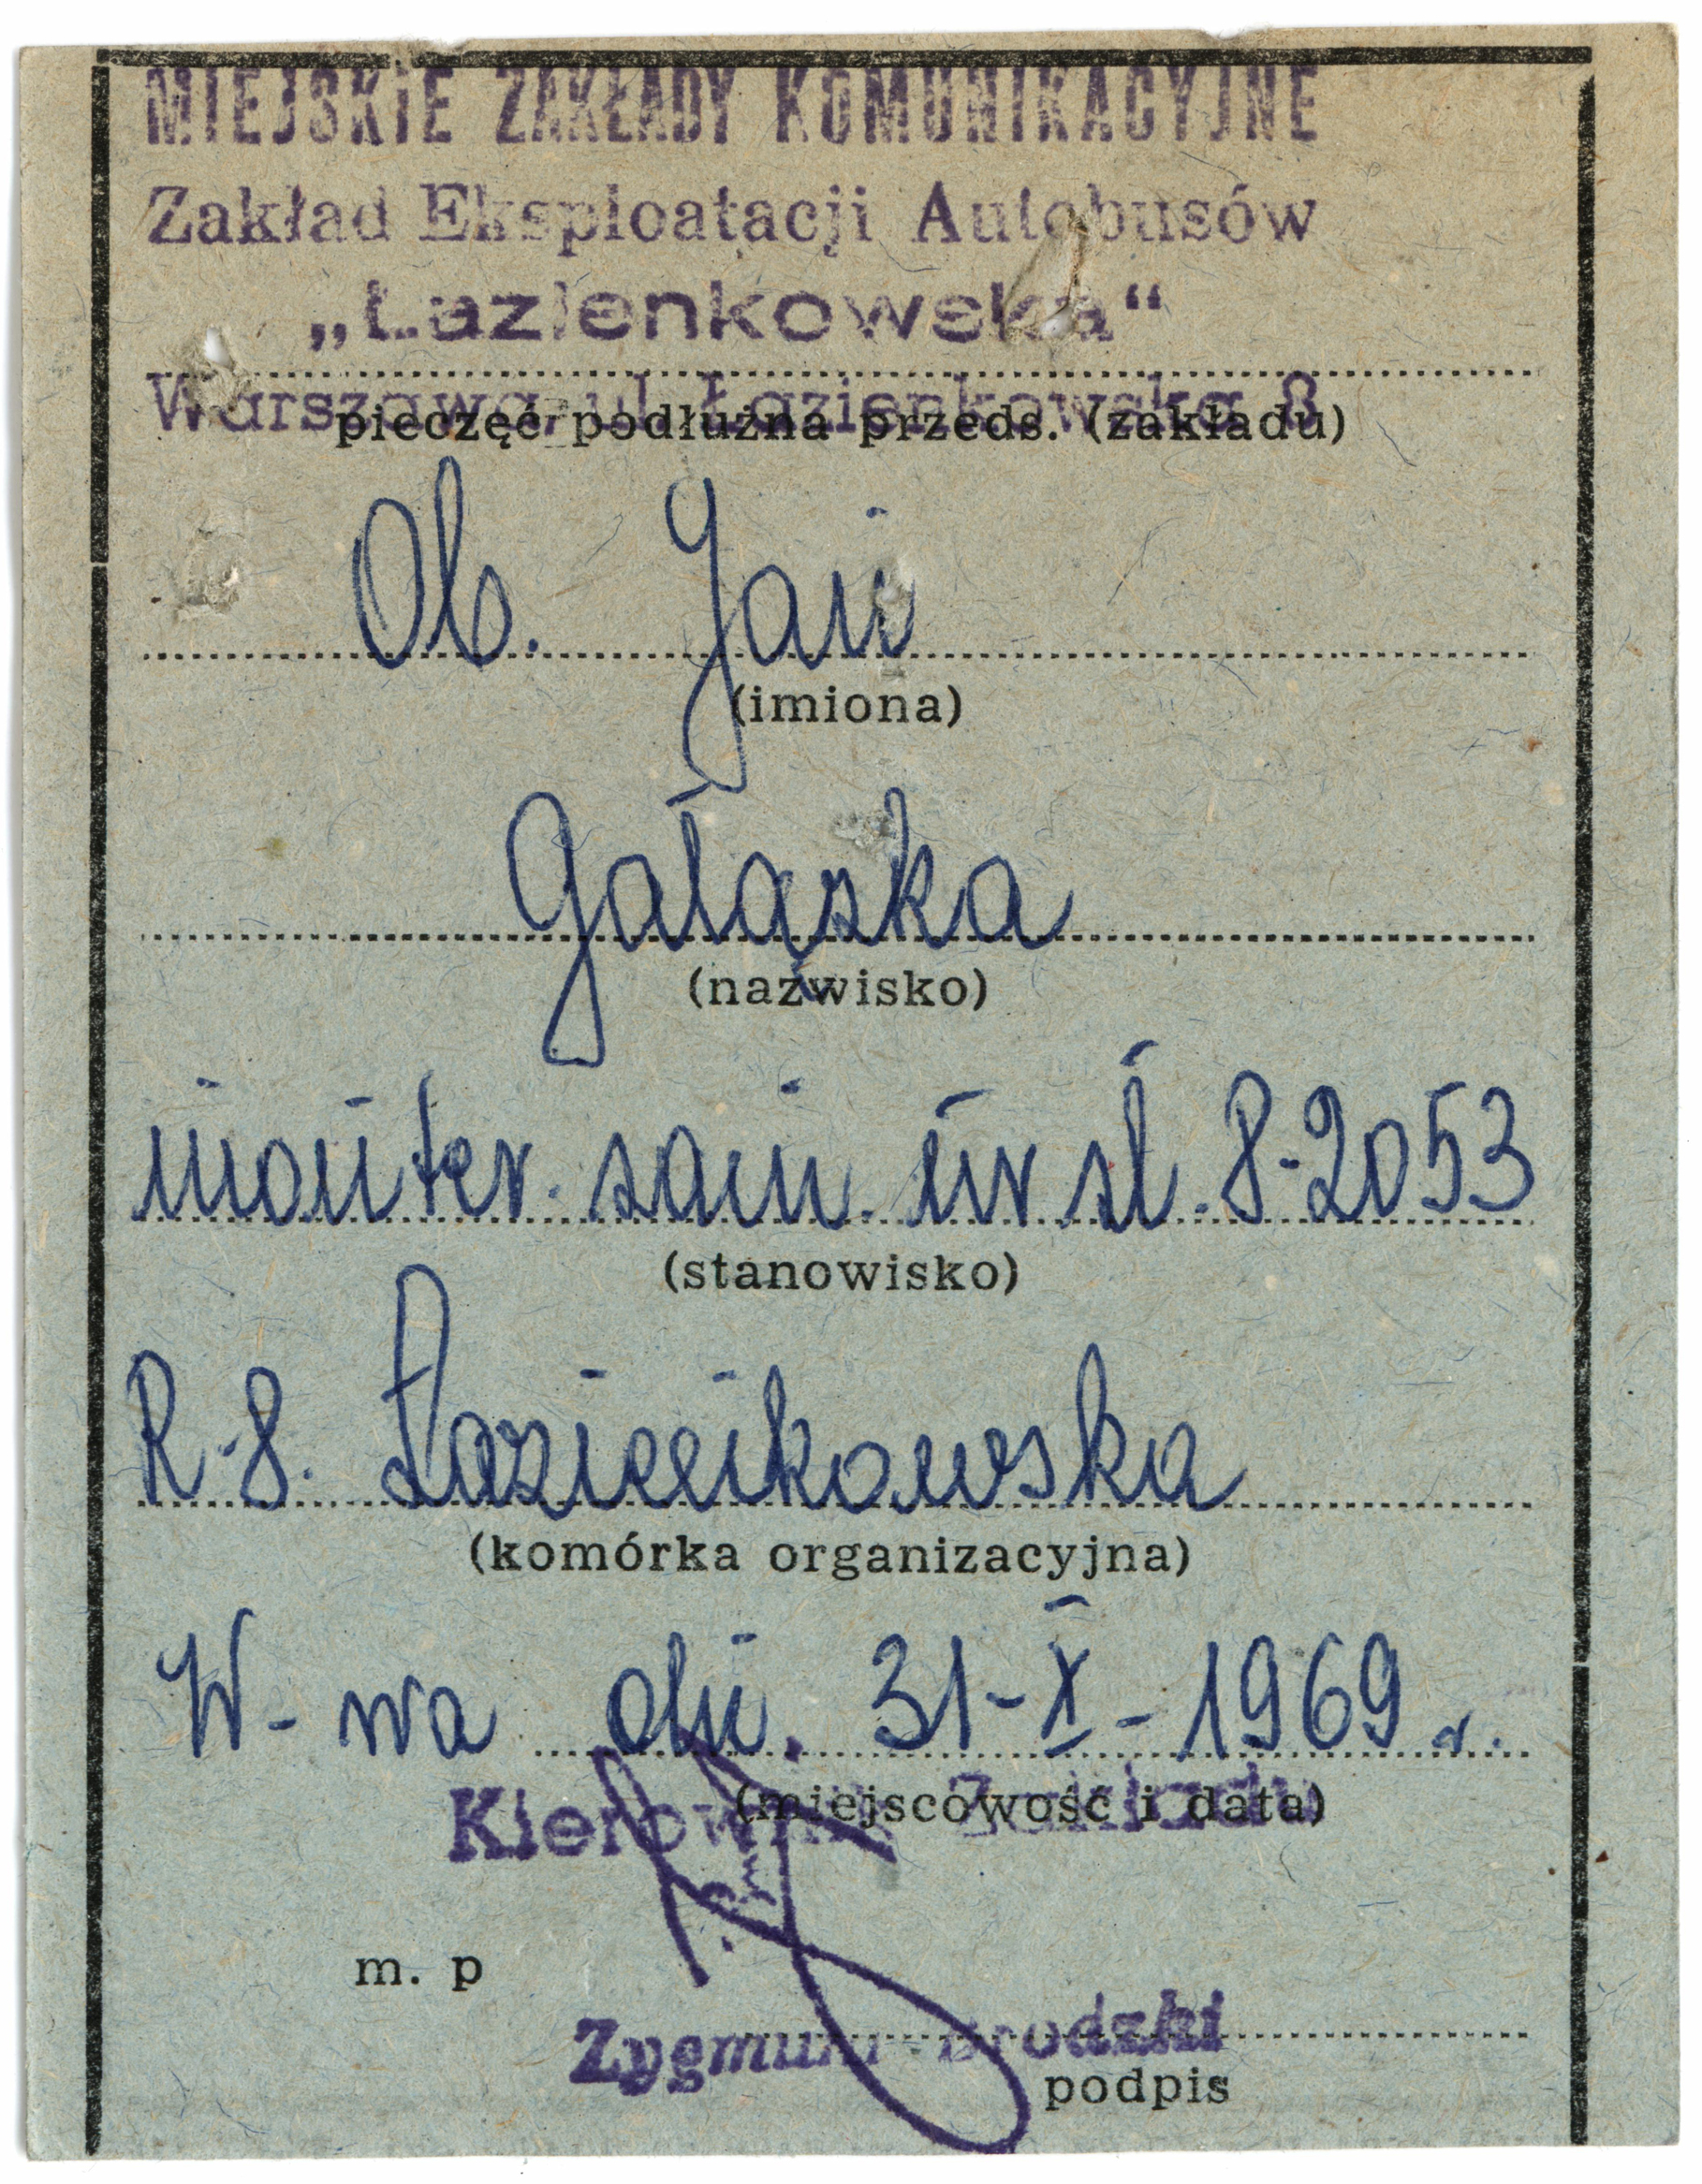 MIEJSKIE ZAKŁADY KOMUNIKACYJNE
Zakład Eksploatacji Autobusów
„Łazienkowska“
Warszawa, ul. Łazienkowska 8
pieczęć podłużna przeds. (zakładu)
Ob. Jan
(imiona)
Gałązka
(nazwisko)
monter. sam. nr sł. 8-2053
(stanowisko)
R-8. Łazienkowska
(komórka organizacyjna)
W-wa dn. 31-X-1969 r.
(miejscowość i data)
Kierownik Zakładu
m. p
Zygmunt Brodzki
podpis